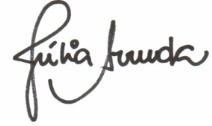 Júlia Arruda